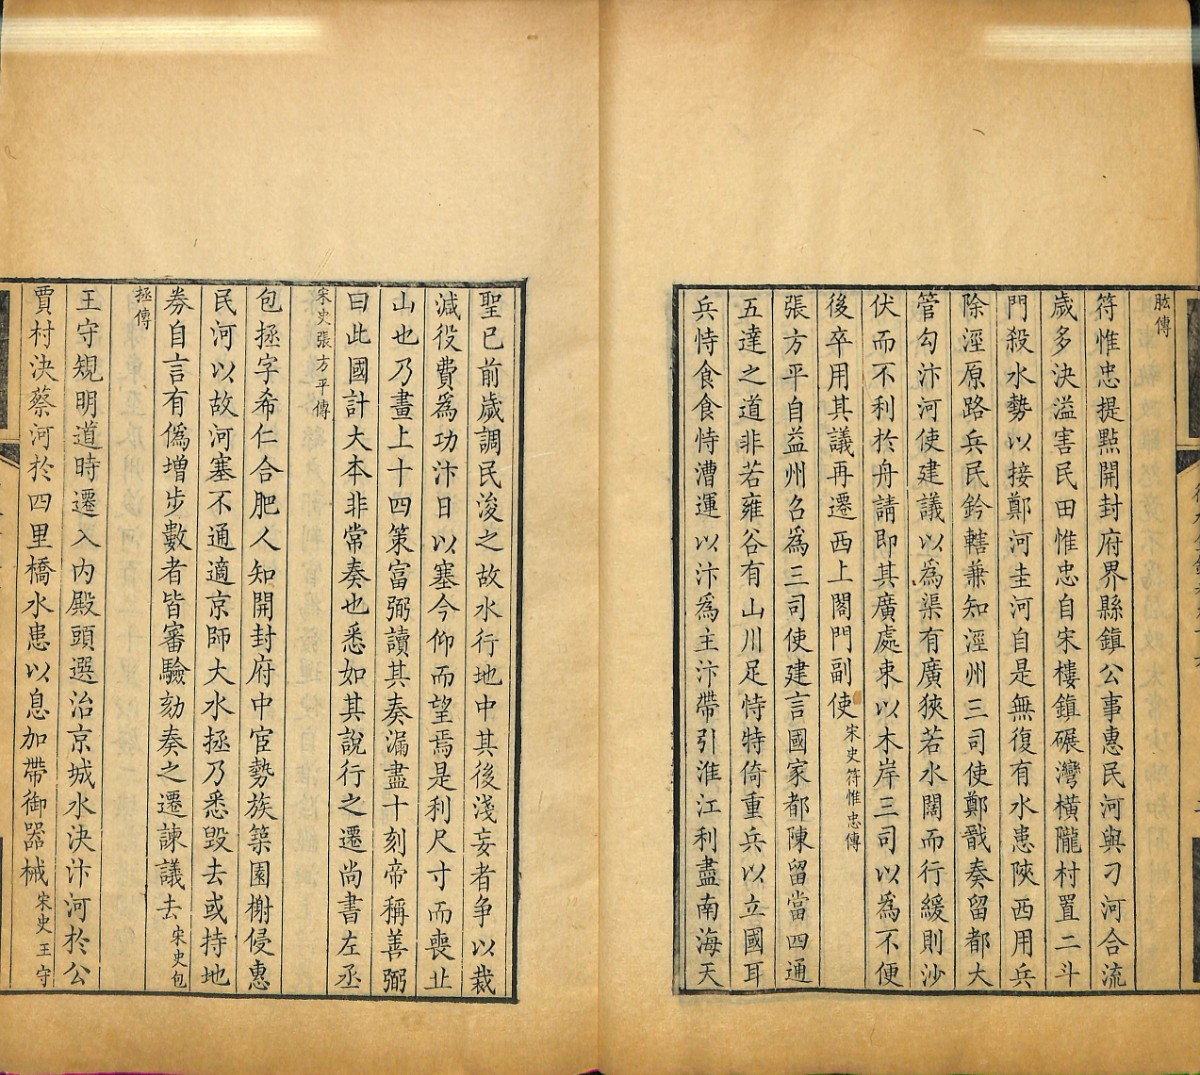 肱傳
符惟忠提點開封府界縣鎮公事惠民河與刁河合流
歲多決溢害民田惟忠自宋樓鎮碾灣橫隴村置二斗
門殺水勢以接鄭河圭河自是無復有水患陝西用兵
除涇原路兵民鈐轄兼知涇州三司使鄭戩奏留都大
管勾汴河使建議以為渠有廣狹若水闊而行緩則沙
伏而不利於舟請即其廣處束以木岸三司以為不便
後卒用其議再遷西上閤門副使宋史符惟忠傳
張方平自益州召為三司使建言國家都陳留當四通
五達之道非若雍谷有山川足恃特倚重兵以立國耳
兵恃食食恃漕運以汴為主汴帶引淮江利盡南海天
聖已前歲調民浚之故水行地中其後淺妄者争以裁
減役費為功汴日以塞今仰而望焉是利尺寸而喪丘
山也乃畫上十四策富弼讀其奏漏盡十刻帝稱善弼
曰此國計大本非常奏也悉如其說行之遷尚書左丞
宋史張方平傳
包拯字希仁合肥人知開封府中宦勢族築園榭侵惠
民河以故河塞不通適京師大水拯乃悉毀去或持地
券自言有偽增步數者皆審驗劾奏之遷諫議去宋史包
拯傳
王守規明道時遷入內殿頭選治京城水決汴河於公
賈村決蔡河於四里橋水患以息加帶御器械宋史王守